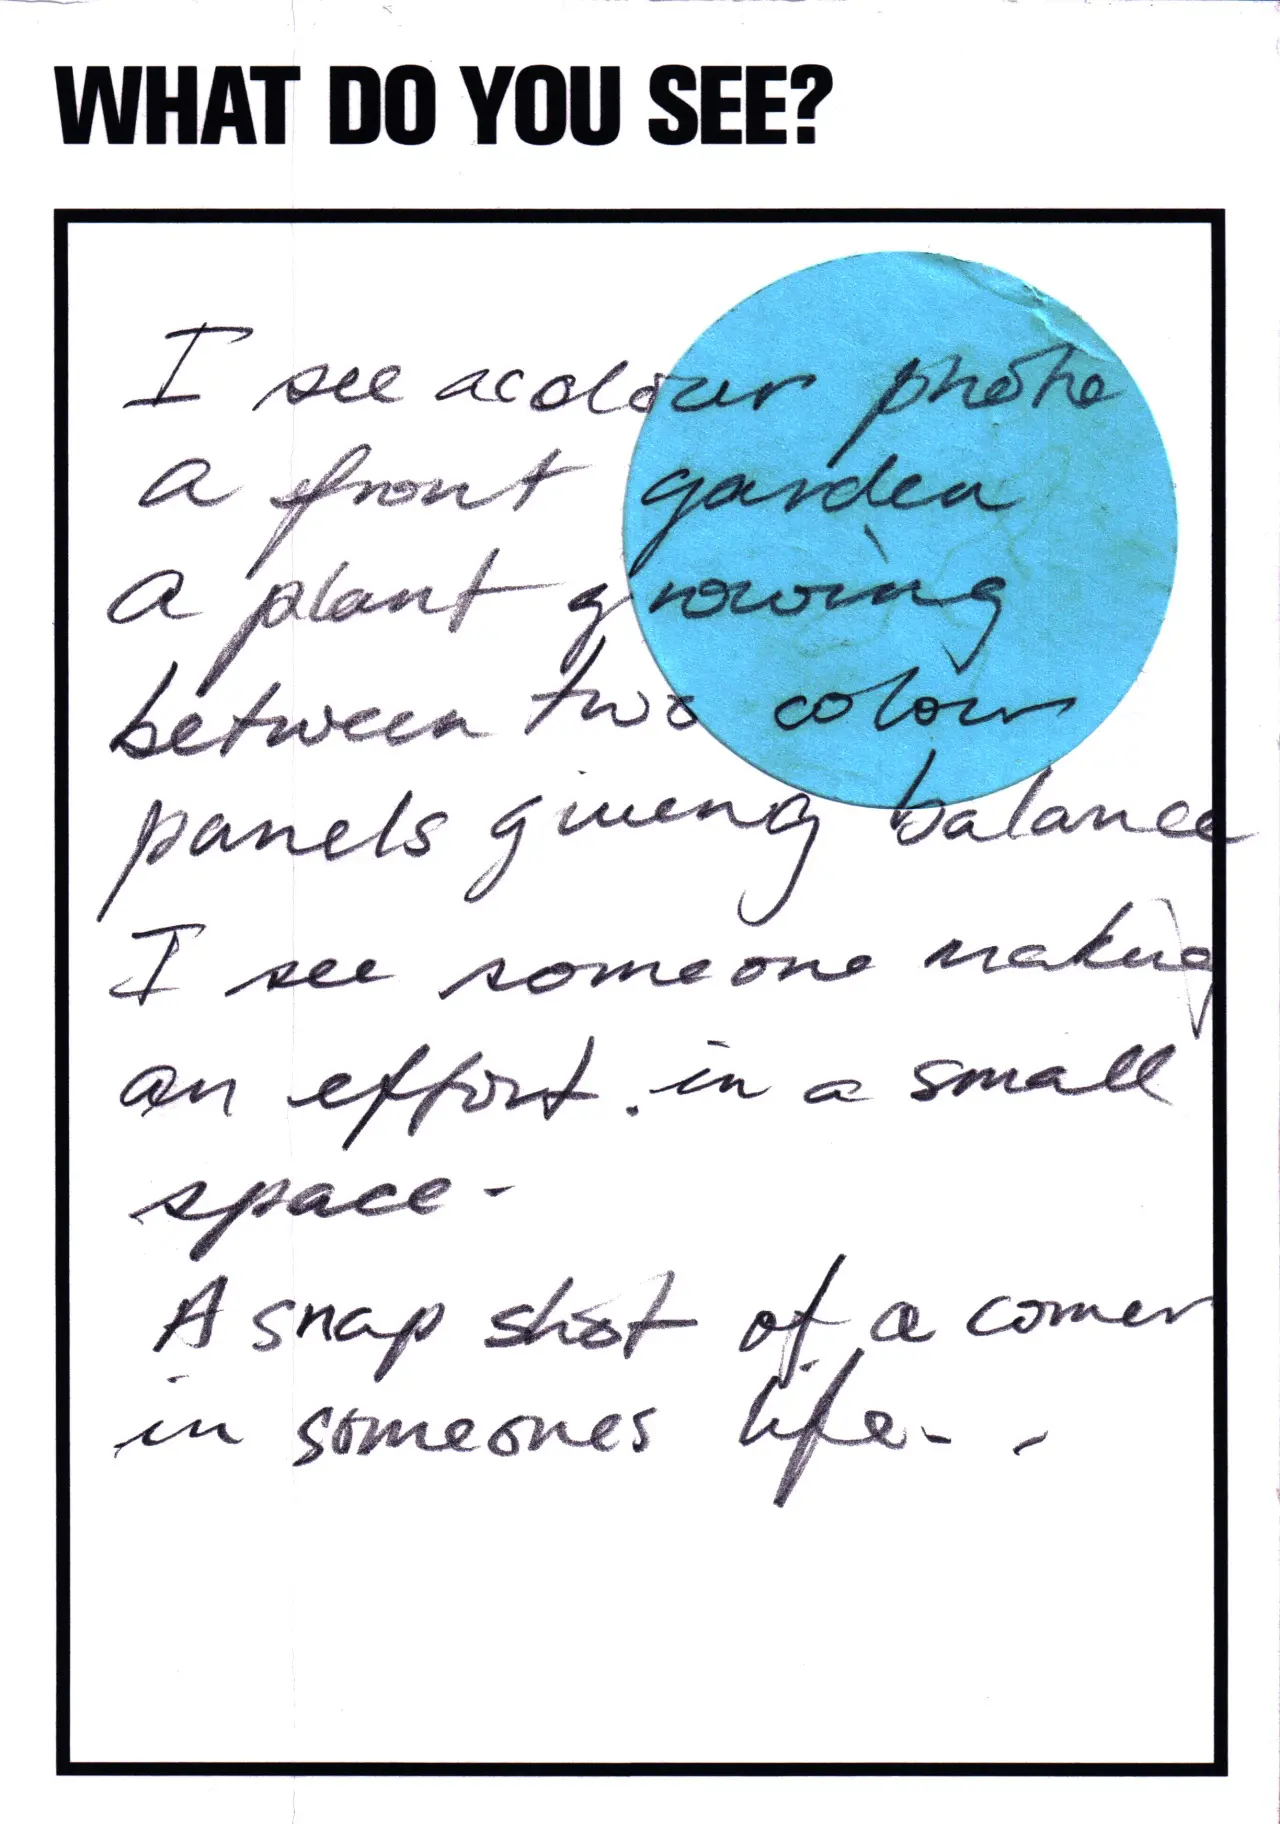 WHAT DO YOU SEE?
I see a colour photo
a front garden
a plant growing
between two colour
panels giveng balance
I see someone making
an effort. in a small
space -
A snap shot of a corner
in someones life - .